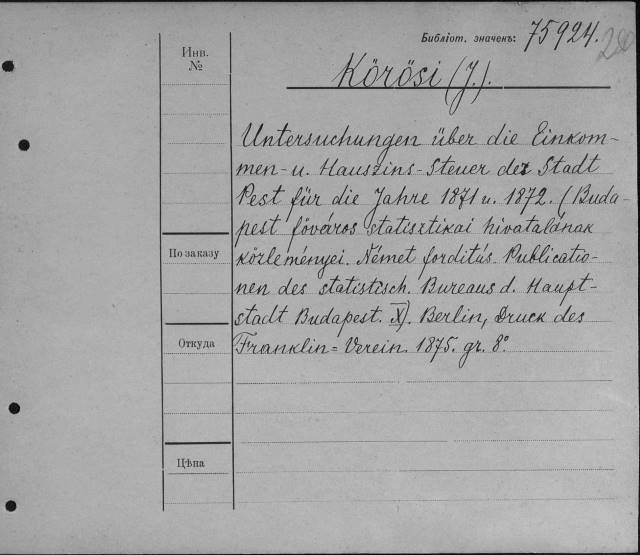 Библіот. значекъ: 75924.
Инв.
№
Körösi (J.).
Untersuchungen über die Einkom-
men- u. Hauszins-Steuer der Stadt
Pest für die Jahre 1871 u. 1872. (Buda-
pest főváros statisztikai hivatalának
közleményei. Német fordítás. Publicatio-
nen des statistisch. Bureaus d. Haupt-
stadt Budapest. X). Berlin, Druck des
Franklin=Verein. 1875. gr. 8°.
По заказу
Откуда
Цѣна